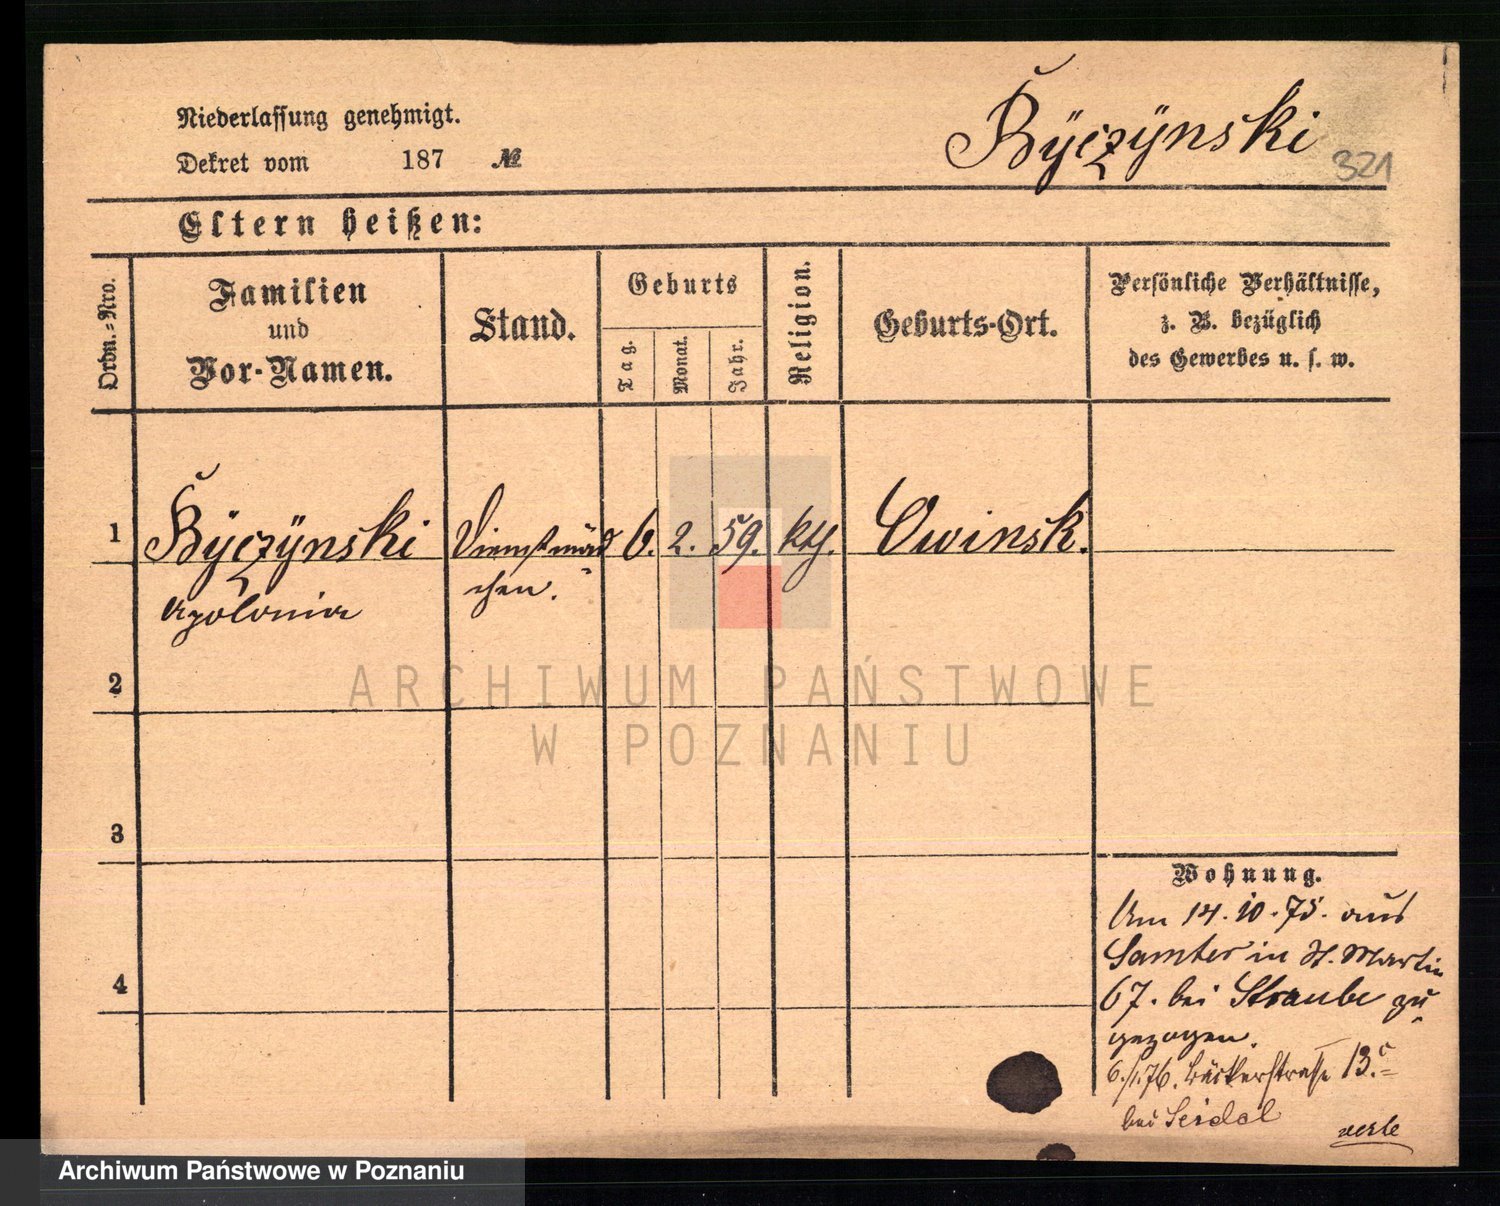 Niederlassung genehmigt.
Dekret vom 187 №
Byczynski
321
Eltern heißen:
Ordn.-Nro.
Familien
und
Vor-Namen.
Stand.
Geburts
Tag.
Monat.
Jahr.
Religion.
Geburts-Ort.
Persönliche Verhältnisse,
z. B. bezüglich
des Gewerbes u. s. w.
1 Byczynski Dienstmäd 6. 2. 59. kth. Owinsk.
Apolonia chen.
2
3
4
Wohnung.
Am 14.10.75. aus
Samter in St. Martin
67. bei Straube zu
gezogen.
6./1.76. Bäckerstraße 13.c
bei Seidal
ARCHIWUM PAŃSTWOWE
W POZNANIU
Archiwum Państwowe w Poznaniu